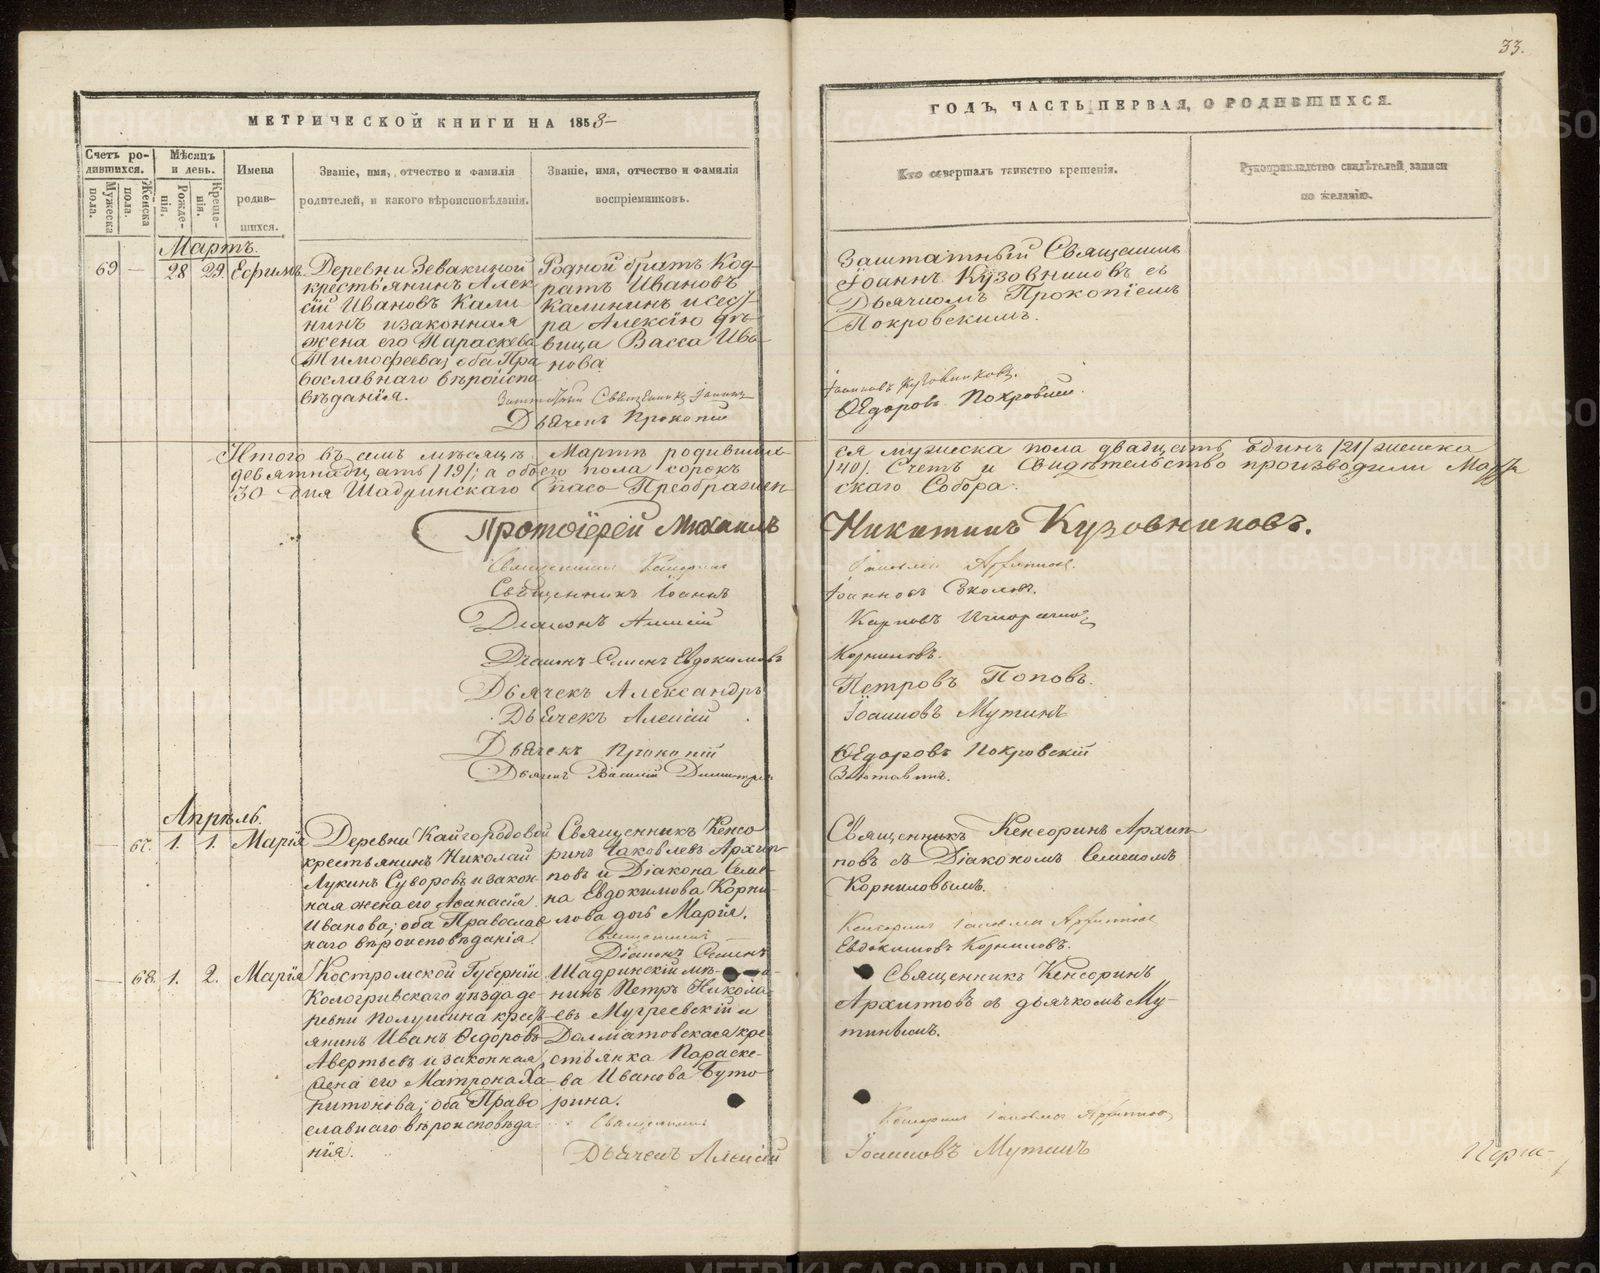 33.
МЕТРИЧЕСКОЙ КНИГИ НА 1858
ГОДЪ, ЧАСТЬ ПЕРВАЯ, О РОДИВШИХСЯ.
Счетъ ро-
дившихся.
Мужеска
пола.
Женска
пола.
Мѣсяцъ
и день.
Рожде-
нія.
Креще-
нія.
Имена
родив-
шихся.
Званіе, имя, отчество и фамилія
родителей, и какого вѣроисповѣданія.
Званіе, имя, отчество и фамилія
воспріемниковъ.
Кто совершалъ таинство крещенія.
Рукоприкладство свидѣтелей записи
по желанію.
Мартъ.
69 — 28 29. Ефимъ.
Деревни Зевакиной
крестьянинъ Алек-
сій Ивановъ Кали-
нинъ и законная
жена его Параскева
Тимофеева; оба Пра-
вославнаго вѣроиспо-
вѣданія.
Родной братъ Код-
ратъ Ивановъ
Калининъ и сест-
ра Алексію дѣ-
вица Васса Ива-
нова
Заштатный Священникъ Іоаннъ
Дьячекъ Прокопій
Заштатный Священникъ
Іоаннъ Кузовниковъ съ
Дьячкомъ Прокопіемъ
Покровскимъ.
Іоанновъ Кузовниковъ.
Ѳедоровъ Покровскій
Итого въ семъ мѣсяцѣ Мартѣ родивших-
ся мужеска пола двадцать одинъ /21/ женска
девятнадцать /19/; а обоего пола сорокъ
/40/. Счетъ и Свидѣтельство производили Марта
30 дня Шадринскаго Спасо-Преображен-
скаго Собора.
Протоіерей Михаилъ
Никитинъ Кузовниковъ.
Священникъ Кенсоринъ
Іаковлевъ Архиповъ.
Священникъ Іоаннъ
Іоанновъ Соколовъ.
Діаконъ Алексій
Карповъ
Діаконъ Семенъ Евдокимовъ
Корниловъ.
Дьячекъ Александръ
Петровъ Поповъ.
Дьячекъ Алексій
Іоанновъ Мутинъ
Дьячекъ Прокопій
Ѳедоровъ Покровскій
Дьячекъ Василій Димитріевъ
Апрѣль.
67. 1. 1. Марія
Деревни Кайгородовой
крестьянинъ Николай
Лукинъ Суворовъ и закон-
ная жена его Аѳанасія
Иванова; оба Православ-
наго вѣроисповѣданія.
Священникъ Кенсо-
ринъ Іаковлевъ Архип-
повъ и Діакона Семе-
на Евдокимова Корни-
лова дочь Марія.
Священникъ
Діаконъ Семенъ
Священникъ Кенсоринъ Архип-
повъ съ Діакономъ Семеномъ
Корниловымъ.
Кенсоринъ Іаковлевъ Архиповъ
Евдокимовъ Корниловъ.
68. 1. 2. Марія
Костромской Губерніи
Кологривскаго уѣзда де-
ревни Полушина крестъ-
янинъ Иванъ Ѳедоровъ
Авертьевъ и законная
жена его Матрона Ха-
ритонова; оба Право-
славнаго вѣроисповѣда-
нія.
Шадринскій
нинъ Петръ Никола-
евъ Мугреевскій и
Далматовская кре-
стьянка Параске-
ва Иванова Буто-
рина.
Священникъ
Дьячекъ Алексій
Священникъ Кенсоринъ
Архиповъ съ дьячкомъ Му-
тинымъ.
Кенсоринъ Іаковлевъ Архиповъ
Іоанновъ Мутинъ